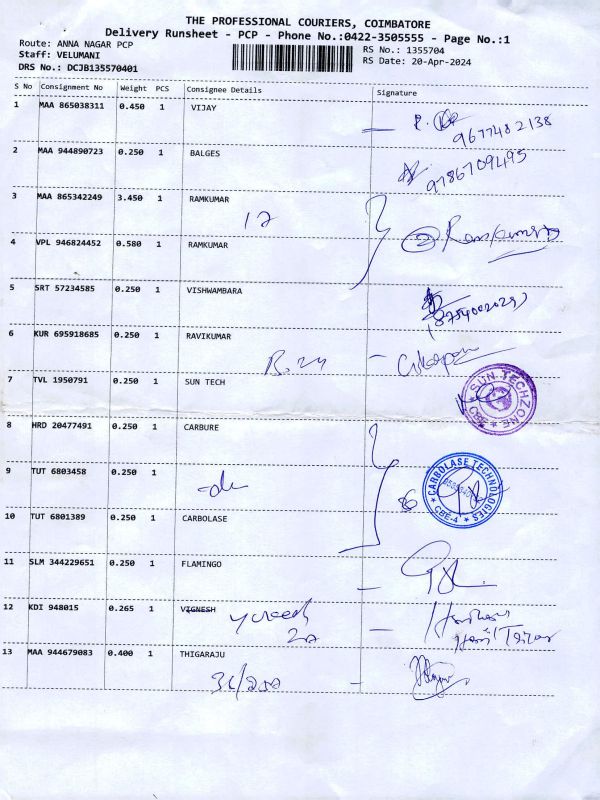 THE PROFESSIONAL COURIERS, COIMBATORE
Delivery Runsheet - PCP - Phone No.:0422-3505555 - Page No.:1
Route: ANNA NAGAR PCP
RS No.: 1355704
Staff: VELUMANI
RS Date: 20-Apr-2024
DRS No.: DCJB135570401
S No Consignment No Weight PCS Consignee Details Signature
1 MAA 865038311 0.450 1 VIJAY
9677482138
2 MAA 944890723 0.250 1 BALGES
9786709495
3 MAA 865342249 3.450 1 RAMKUMAR
Ramkumar
4 VPL 946824452 0.580 1 RAMKUMAR
5 SRT 57234585 0.250 1 VISHWAMBARA
6 KUR 695918685 0.250 1 RAVIKUMAR
7 TVL 1950791 0.250 1 SUN TECH
SUN TECHZONE
CBE
8 HRD 20477491 0.250 1 CARBURE
9 TUT 6803458 0.250 1
-do
CARBOLASE TECHNOLOGIES
CBE-4
10 TUT 6801389 0.250 1 CARBOLASE
11 SLM 344229651 0.250 1 FLAMINGO
12 KDI 948015 0.265 1 VIGNESH
13 MAA 944679083 0.400 1 THIGARAJU